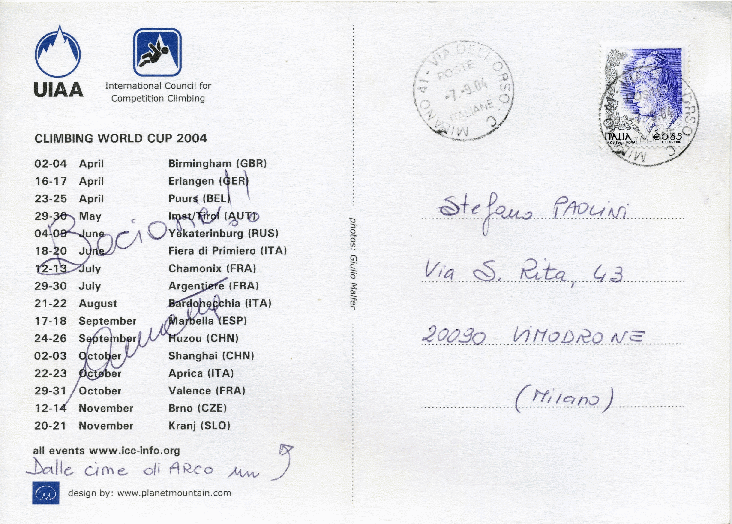 UIAA
International Council for
Competition Climbing
CLIMBING WORLD CUP 2004
02-04 April Birmingham (GBR)
16-17 April Erlangen (GER)
23-25 April Puurs (BEL)
29-30 May Imst/Tirol (AUT)
04-08 June Yekaterinburg (RUS)
18-20 June Fiera di Primiero (ITA)
12-13 July Chamonix (FRA)
29-30 July Argentiere (FRA)
21-22 August Bardonecchia (ITA)
17-18 September Marbella (ESP)
24-26 September Huzou (CHN)
02-03 October Shanghai (CHN)
22-23 October Aprica (ITA)
29-31 October Valence (FRA)
12-14 November Brno (CZE)
20-21 November Kranj (SLO)
all events www.icc-info.org
Dalle cime di ARCO un
Bacione!!
design by: www.planetmountain.com
photos: Giulio Malfer
MILANO 41 - VIA DELL'ORSO - C
POSTE
-7-9.04
ITALIANE
ITALIA
€0,65
Stefano PAOLINI
Via S. Rita, 43
20090 VIMODRONE
(Milano)